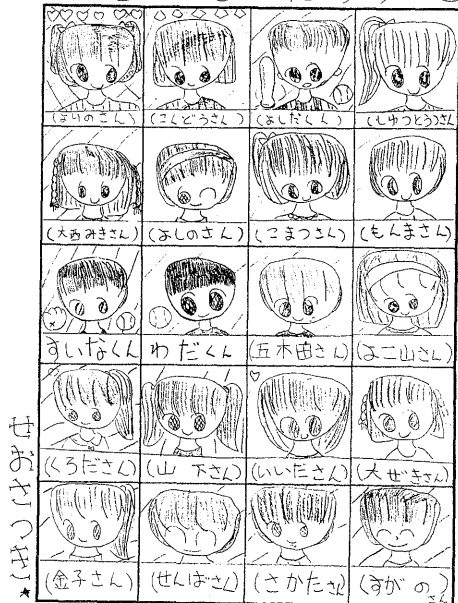 (よりのさん)
(こんどうさん)
(よしだくん)
(しゅつとうさん)
(大西みきさん)
(よしのさん)
(こまつさん)
(もんまさん)
すいなくん
わだくん
(五木田さん)
(よこ山さん)
(くろださん)
(山下さん)
(いいださん)
(大ぜきさん)
(金子さん)
(せんばさん)
(さかたさん)
(すがのさん)
せおさつき★